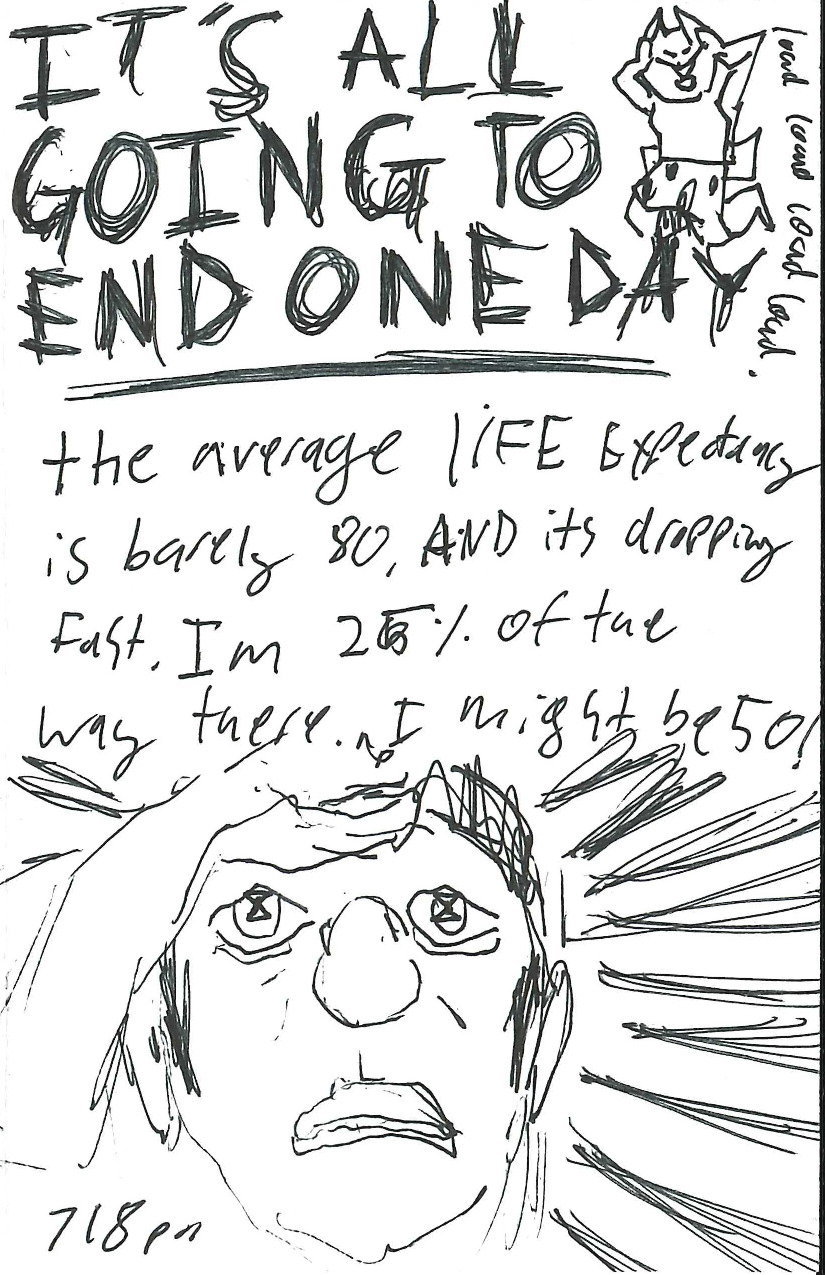 IT'S ALL
GOING TO
END ONE DAY
loud loud loud loud.
the average liFE Expectancy
is barely 80, AND its dropping
Fast. Im 25% of the
way there. I might be 50!
718pm